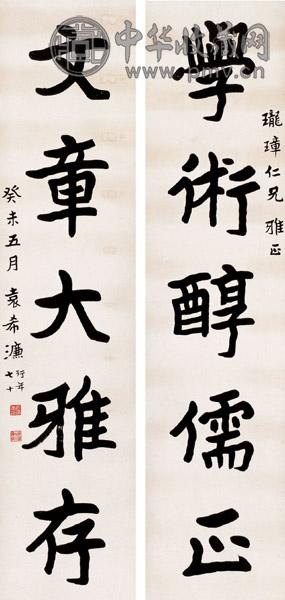 瓏璋仁兄 雅正
學術醇儒正
文章大雅存
癸未五月 袁希濂 行年七十
中华收藏网
www.pmv.cn